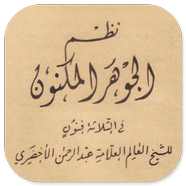 نظم
الجوهر المكنون
في الثلاثة فنون
للشيخ العالم العلامة عبد الرحمن الأخضري